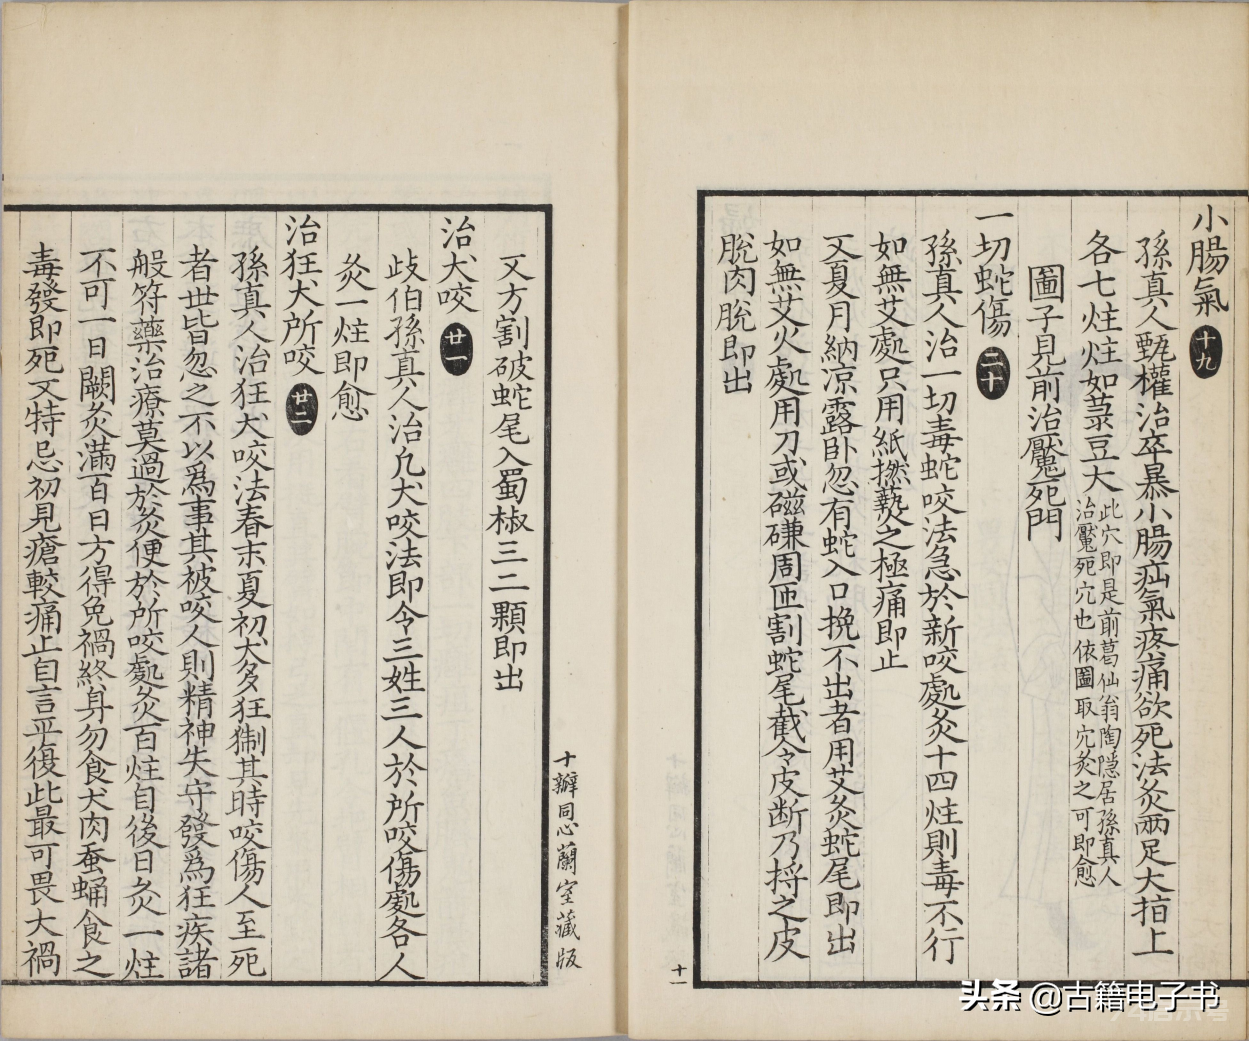 小腸氣 十九
孫真人甄權治卒暴小腸疝氣疼痛欲死法灸兩足大拍上
各七炷炷如菉豆大 此穴即是前葛仙翁陶隱居孫真人
治魘死穴也依圖取穴灸之可即愈
圖子見前治魘死門
一切蛇傷 二十
孫真人治一切毒蛇咬法急於新咬處灸十四炷則毒不行
如無艾處只用紙撚爇之極痛即止
又夏月納凉露卧忽有蛇入口挽不出者用艾灸蛇尾即出
如無艾火處用刀或磁磏周匝割蛇尾截令皮断乃捋之皮
脫肉脫即出
十一
又方割破蛇尾入蜀椒三二顆即出
治犬咬 廿一
歧伯孫真人治凡犬咬法即令三姓三人於所咬傷處各人
灸一炷即愈
治狂犬所咬 廿二
孫真人治狂犬咬法春末夏初犬多狂猘其時咬傷人至死
者世皆忽之不以爲事其被咬人則精神失守發爲狂疾諸
般符藥治療莫過於灸便於所咬處灸百炷自後日灸一炷
不可一日闕灸滿百日方得免禍終身勿食犬肉蚕蛹食之
毒發即死又特忌初見瘡較痛止自言平復此最可畏大禍
十瓣同心蘭室藏版
头条 @古籍电子书